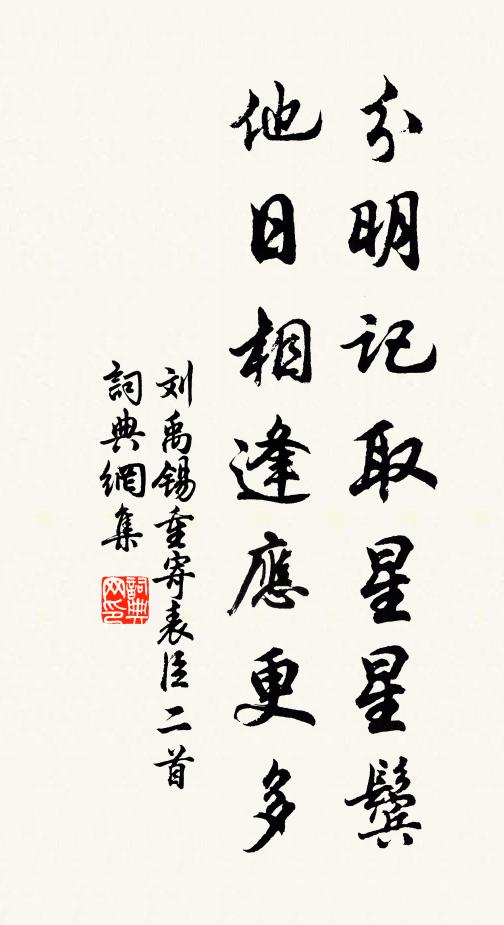 分明记取星星鬓
他日相逢應更多
刘禹锡重寄表臣二首
詞典網集
詞典
网印